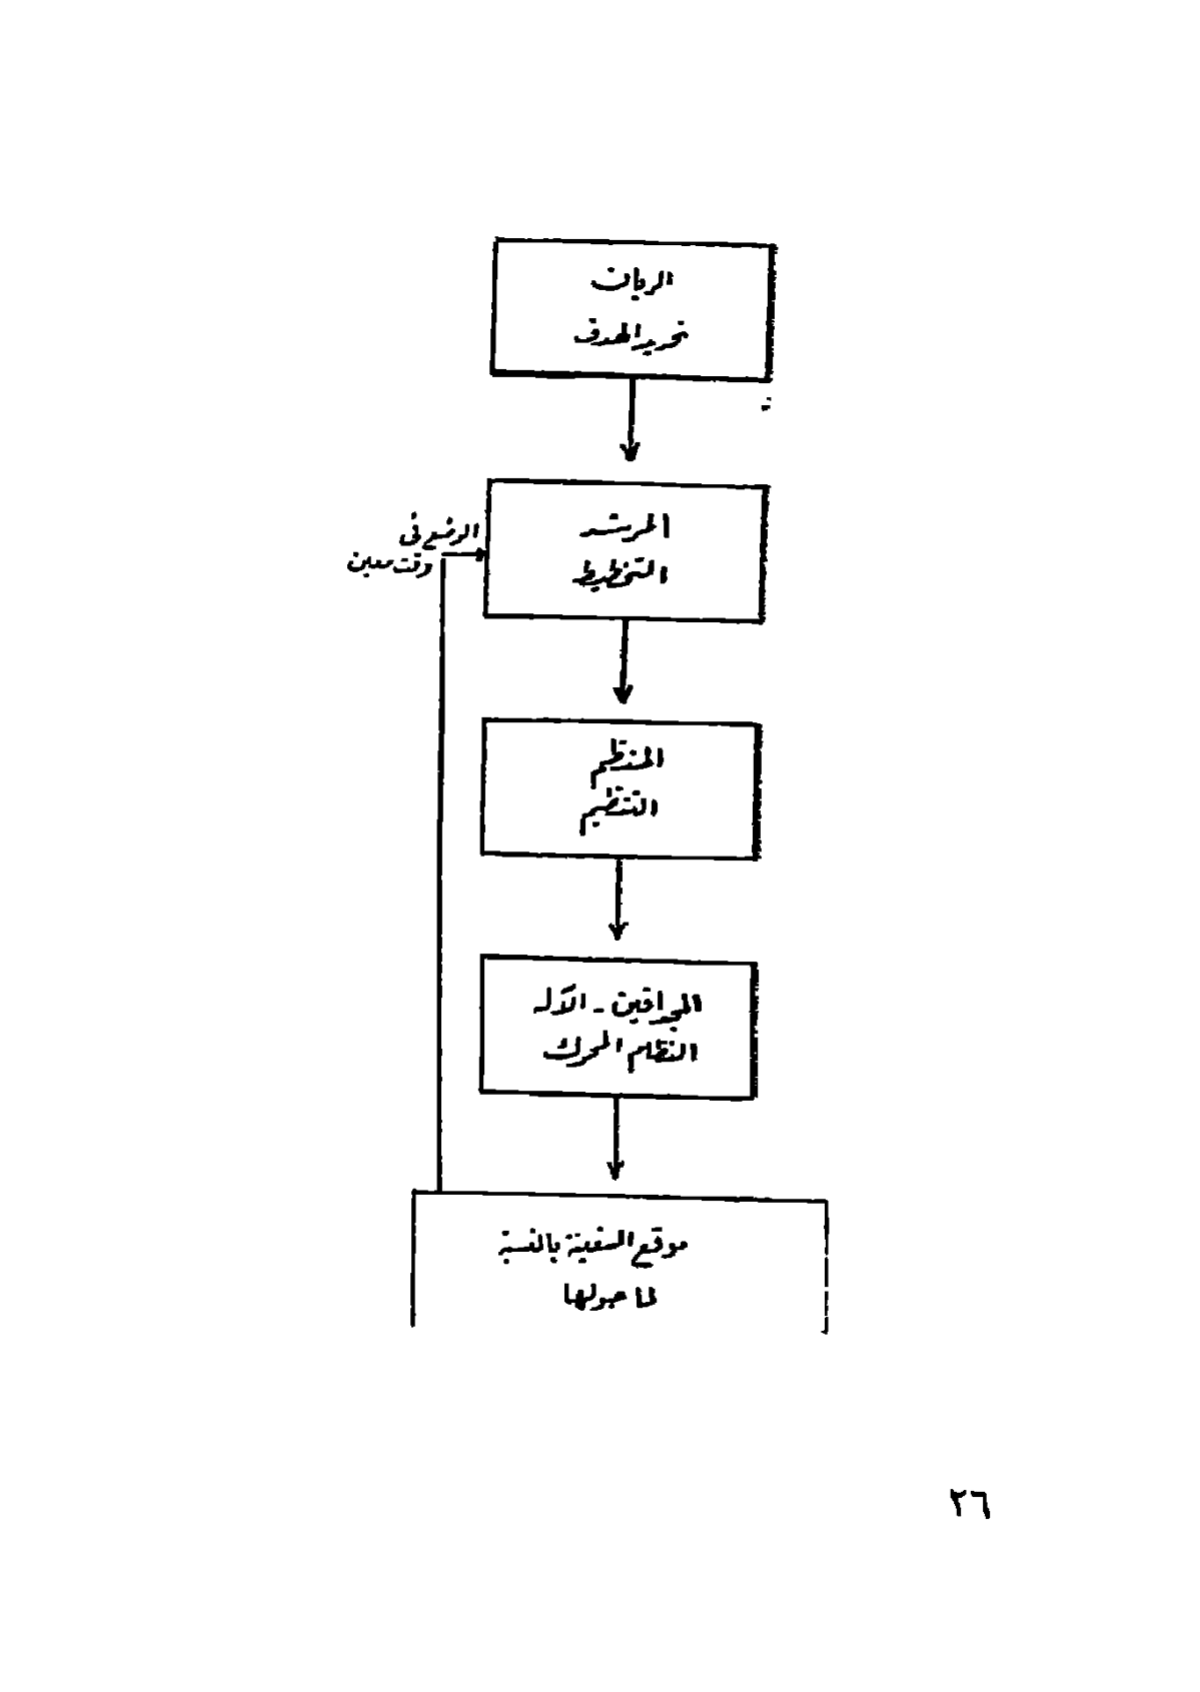 الربان
تحديد الهدف
المرشد
التخطيط
الوضع فى
وقت معين
المنظم
التنظيم
المجدافين - الآله
النظام المحرك
موقع السفينة بالنسبة
لما حولها
٢٦